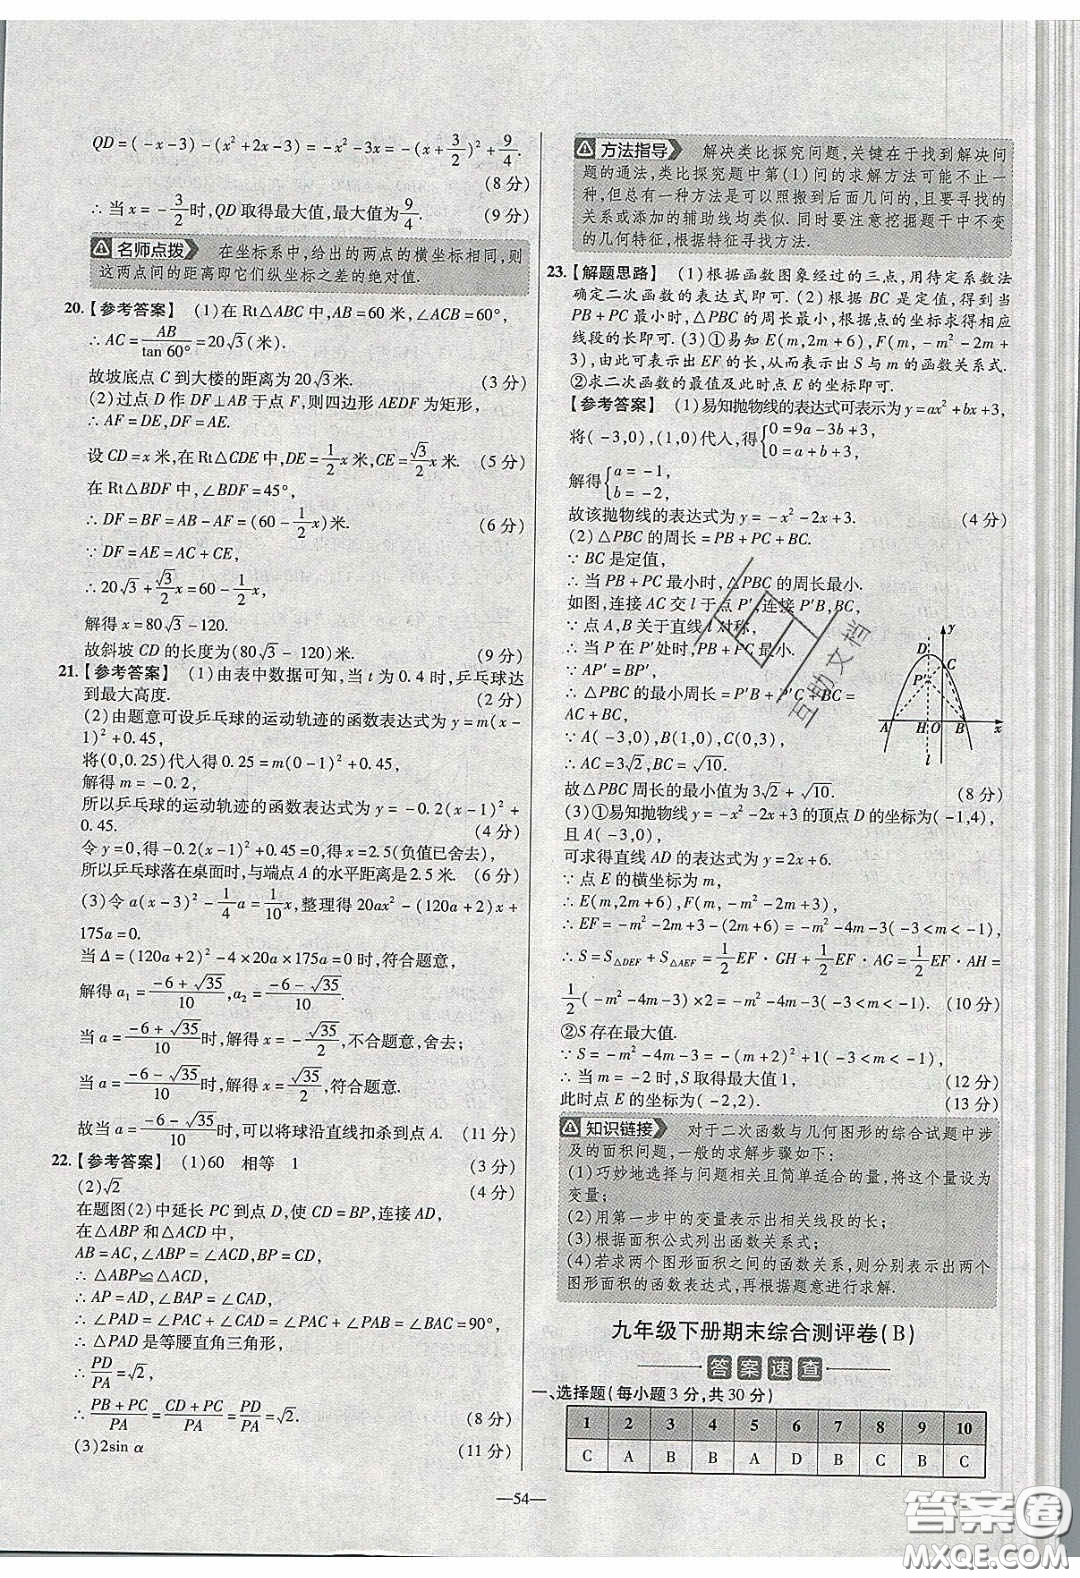 QD=(-x-3)-(x²+2x-3)=-x²-3x=-(x+3/2)²+9/4.
(8分)
∴当x=-3/2时,QD取得最大值,最大值为9/4. (9分)
名师点拨 在坐标系中,给出的两点的横坐标相同,则
这两点间的距离即它们纵坐标之差的绝对值.
20.【参考答案】 (1)在Rt△ABC中,AB=60米,∠ACB=60°,
∴AC=AB/tan 60°=20√3(米).
故坡底点C到大楼的距离为20√3米. (3分)
(2)过点D作DF⊥AB于点F,则四边形AEDF为矩形,
∴AF=DE,DF=AE.
设CD=x米,在Rt△CDE中,DE=1/2x米,CE=√3/2x米. (5分)
在Rt△BDF中,∠BDF=45°,
∴DF=BF=AB-AF=(60-1/2x)米. (6分)
∵DF=AE=AC+CE,
∴20√3+√3/2x=60-1/2x,
解得x=80√3-120.
故斜坡CD的长度为(80√3-120)米. (9分)
21.【参考答案】 (1)由表中数据可知,当t为0.4时,乒乓球达
到最大高度. (2分)
(2)由题意可设乒乓球的运动轨迹的函数表达式为y=m(x-
1)²+0.45,
将(0,0.25)代入得0.25=m(0-1)²+0.45,
解得m=-0.2,
所以乒乓球的运动轨迹的函数表达式为y=-0.2(x-1)²+
0.45. (4分)
令y=0,得-0.2(x-1)²+0.45=0,得x=2.5(负值已舍去),
所以乒乓球落在桌面时,与端点A的水平距离是2.5米. (6分)
(3)令a(x-3)²-1/4a=1/10x,整理得20ax²-(120a+2)x+
175a=0.
当Δ=(120a+2)²-4×20a×175a=0时,符合题意,
解得a₁=(-6+√35)/10,a₂=(-6-√35)/10.
当a=(-6+√35)/10时,解得x=-√35/2,不合题意,舍去;
当a=(-6-√35)/10时,解得x=√35/2,符合题意.
故当a=(-6-√35)/10时,可以将球沿直线扣杀到点A. (11分)
22.【参考答案】 (1)60 相等 1 (3分)
(2)√2 (4分)
在题图(2)中延长PC到点D,使CD=BP,连接AD,
在△ABP和△ACD中,
AB=AC,∠ABP=∠ACD,BP=CD,
∴△ABP≌△ACD,
∴AP=AD,∠BAP=∠CAD,
∴∠PAD=∠PAC+∠CAD=∠PAC+∠BAP=∠BAC=90°,
∴△PAD是等腰直角三角形,
∴PD/PA=√2,
∴(PB+PC)/PA=(CD+PC)/PA=PD/PA=√2. (8分)
(3)2sin α (11分)
方法指导 解决类比探究问题,关键在于找到解决问
题的通法,类比探究题中第(1)问的求解方法可能不止一
种,但总有一种方法是可以照搬到后面几问的,且要寻找的
关系或添加的辅助线均类似.同时要注意挖掘题干中不变
的几何特征,根据特征寻找方法.
23.【解题思路】 (1)根据函数图象经过的三点,用待定系数法
确定二次函数的表达式即可.(2)根据BC是定值,得到当
PB+PC最小时,△PBC的周长最小,根据点的坐标求得相应
线段的长即可.(3)①易知E(m,2m+6),F(m,-m²-2m+
3),由此可表示出EF的长,从而表示出S与m的函数关系式.
②求二次函数的最值及此时点E的坐标即可.
【参考答案】 (1)易知抛物线的表达式可表示为y=ax²+bx+3,
将(-3,0),(1,0)代入,得{0=9a-3b+3, 0=a+b+3,
解得{a=-1, b=-2,
故该抛物线的表达式为y=-x²-2x+3. (4分)
(2)△PBC的周长=PB+PC+BC.
∵BC是定值,
∴当PB+PC最小时,△PBC的周长最小.
如图,连接AC交l于点P′,连接P′B,BC,
∵点A,B关于直线l对称,
∴当P在P′处时,PB+PC最小.
∵AP′=BP′,
∴△PBC的最小周长=P′B+P′C+BC=
AC+BC.
∵A(-3,0),B(1,0),C(0,3),
∴AC=3√2,BC=√10.
故△PBC周长的最小值为3√2+√10. (8分)
(3)①易知抛物线y=-x²-2x+3的顶点D的坐标为(-1,4),
且A(-3,0),
可求得直线AD的表达式为y=2x+6.
∵点E的横坐标为m,
∴E(m,2m+6),F(m,-m²-2m+3),
∴EF=-m²-2m+3-(2m+6)=-m²-4m-3(-3<m<-1),
∴S=S△DEF+S△AEF=1/2EF·GH+1/2EF·AG=1/2EF·AH=
1/2(-m²-4m-3)×2=-m²-4m-3(-3<m<-1). (10分)
②S存在最大值.
∵S=-m²-4m-3=-(m+2)²+1,
∴当m=-2时,S取得最大值1, (12分)
此时点E的坐标为(-2,2). (13分)
知识链接 对于二次函数与几何图形的综合试题中涉
及的面积问题,一般的求解步骤如下:
(1)巧妙地选择与问题相关且简单适合的量,将这个量设为
变量;
(2)用第一步中的变量表示出相关线段的长;
(3)根据面积公式列出函数关系式;
(4)若求两个图形面积之间的函数关系,则分别表示出两个
图形面积的函数表达式,再根据题意进行求解.
九年级下册期末综合测评卷(B)
答案速查
一、选择题(每小题3分,共30分)
1 2 3 4 5 6 7 8 9 10
C A B B D A B C B C
—54—
D y C P′ A H O B x l
互动文档
答案卷
MXQE.COM